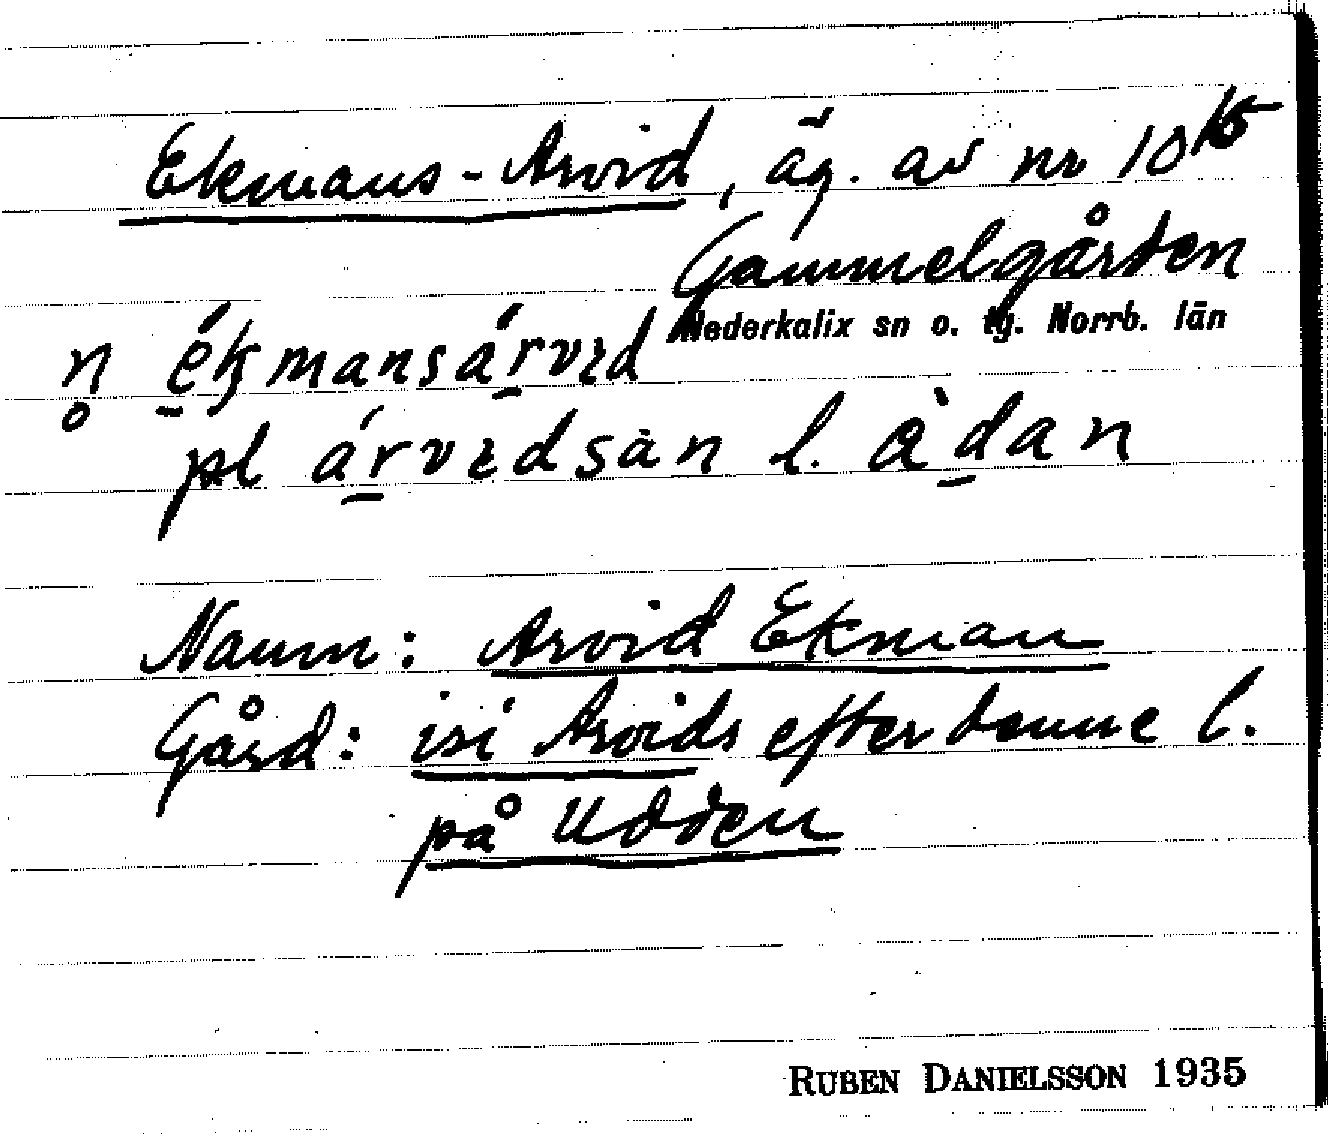 Ekmans-Arvid, äg. av nr 10¹⁵
Gammelgården
Nederkalix sn o. tg. Norrb. län
n̥ ékmansárvid
pl árvidsan l. àdan
Namn: Arvid Ekman
Gård: isi Arvids efter denne l.
på Udden
RUBEN DANIELSSON 1935